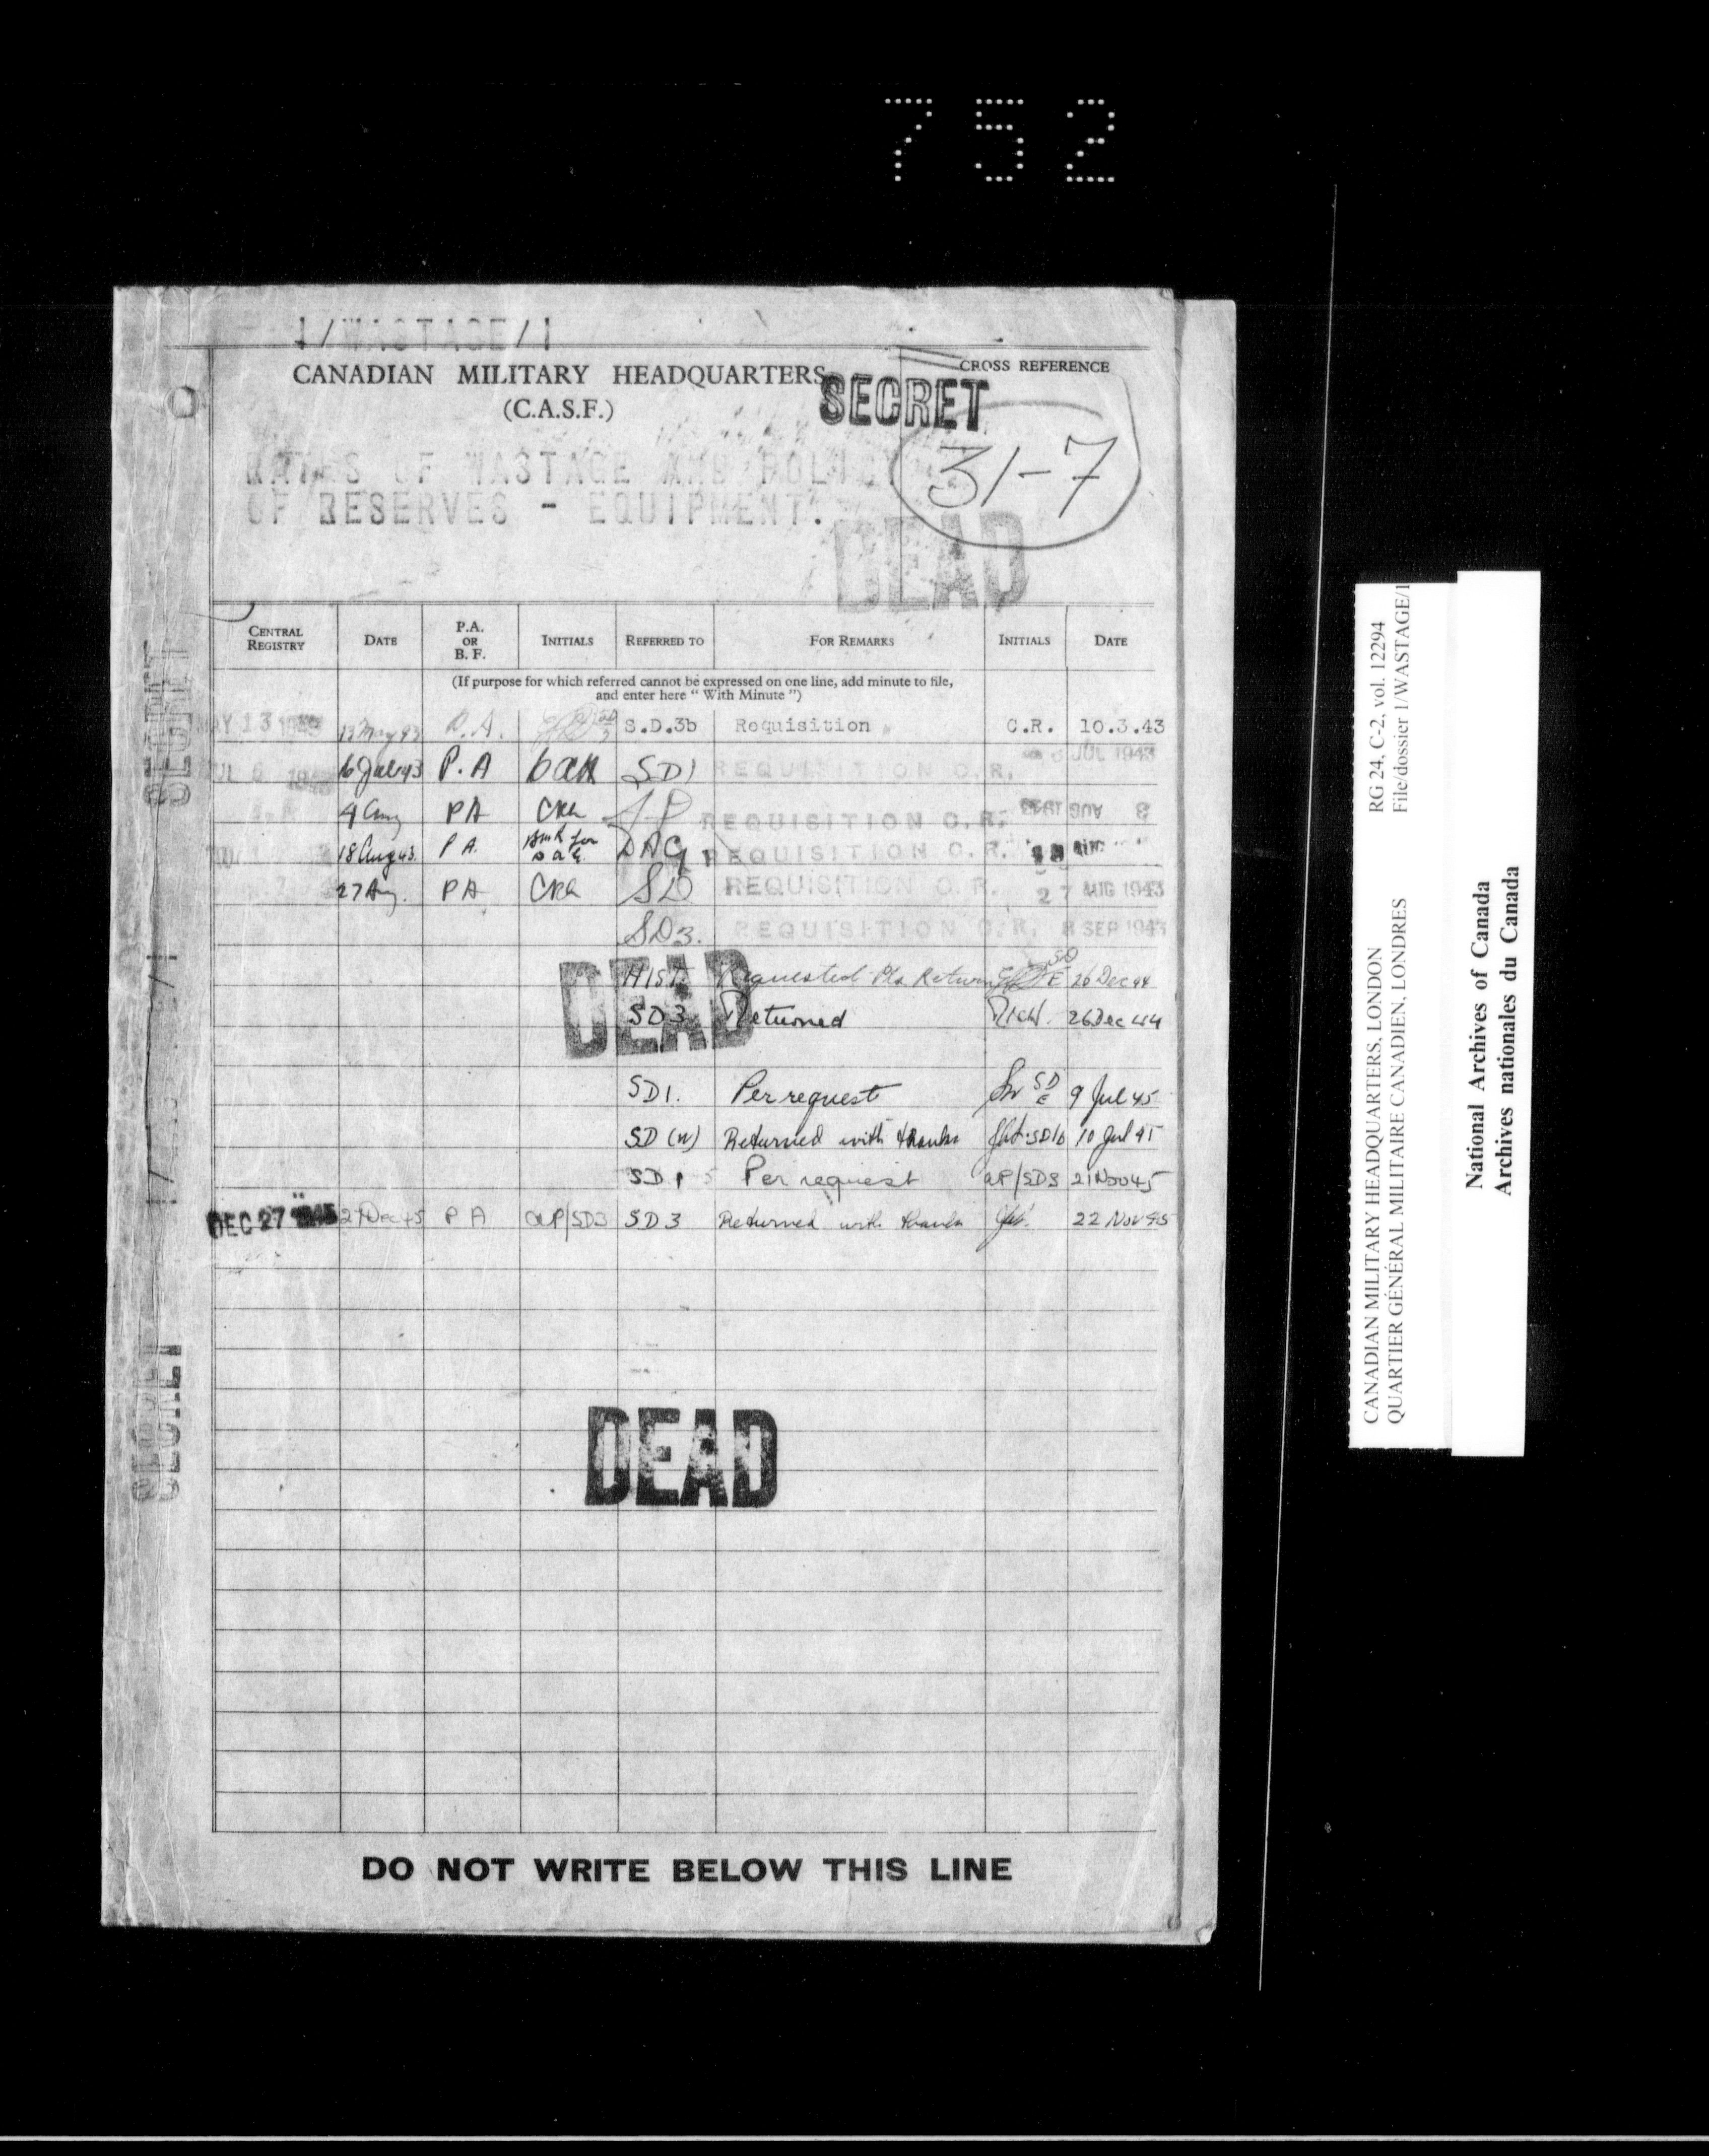 752
1/WASTAGE/1
CANADIAN MILITARY HEADQUARTERS
(C.A.S.F.)
SECRET
CROSS REFERENCE
31-7
RATES OF WASTAGE AND POLICY
OF RESERVES - EQUIPMENT.
DEAD
CENTRAL REGISTRY DATE P.A. OR B. F. INITIALS REFERRED TO FOR REMARKS INITIALS DATE
(If purpose for which referred cannot be expressed on one line, add minute to file,
and enter here “ With Minute ”)
MAY 13 13 May 43 P.A. S.D.3b Requisition C.R. 10.3.43
JUL 6 P.A SD1 REQUISITION C.R. 6 JUL 1943
4 Aug PA REQUISITION C.R. 3 AUG 1943
18 Aug 43. PA. DAG REQUISITION C.R. AUG
27 Aug. PA SD REQUISITION C.R. 27 AUG 1943
SD3. REQUISITION C.R. 8 SEP 1943
HIST. Requested Pls Return SD 26 Dec 44
SD3 Returned 26 Dec 44
DEAD
SD1. Per request SD E 9 Jul 45
SD (W) Returned with thanks SD1b 10 Jul 45
SD1 Per request AP/SD3 21 Nov 45
DEC 27 1945 27 Dec 45 PA AP/SD3 SD3 Returned with thanks 22 Nov 45
DEAD
DO NOT WRITE BELOW THIS LINE
SECRET
SECRET
CANADIAN MILITARY HEADQUARTERS, LONDON RG 24, C-2, vol. 12294
QUARTIER GÉNÉRAL MILITAIRE CANADIEN, LONDRES File/dossier 1/WASTAGE/1
National Archives of Canada
Archives nationales du Canada